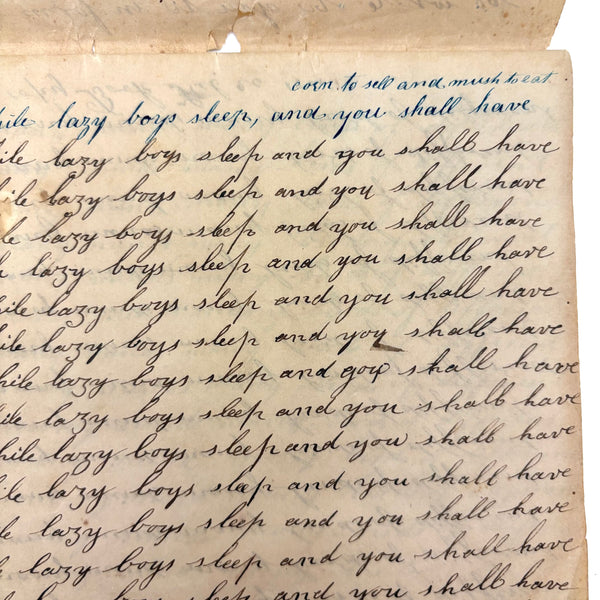 corn to sell and mush to eat
hile lazy boys sleep, and you shall have
hile lazy boys sleep and you shall have
hile lazy boys sleep and yoy shall have
le lazy boys sleep and you shall have
h lazy boys sleep and you shall have
hile lazy boys sleep and you shall have
ile lazy boys sleep and yoy shall have
hile lazy boys sleep and gou shall have
ile lazy boys sleep and you shall have
hile lazy boys sleep and you shall have
ile lazy boys sleep and you shall have
le lazy boys sleep and you shall have
e lazy boys sleep and you shall have
lazy boys sleep and you shall have